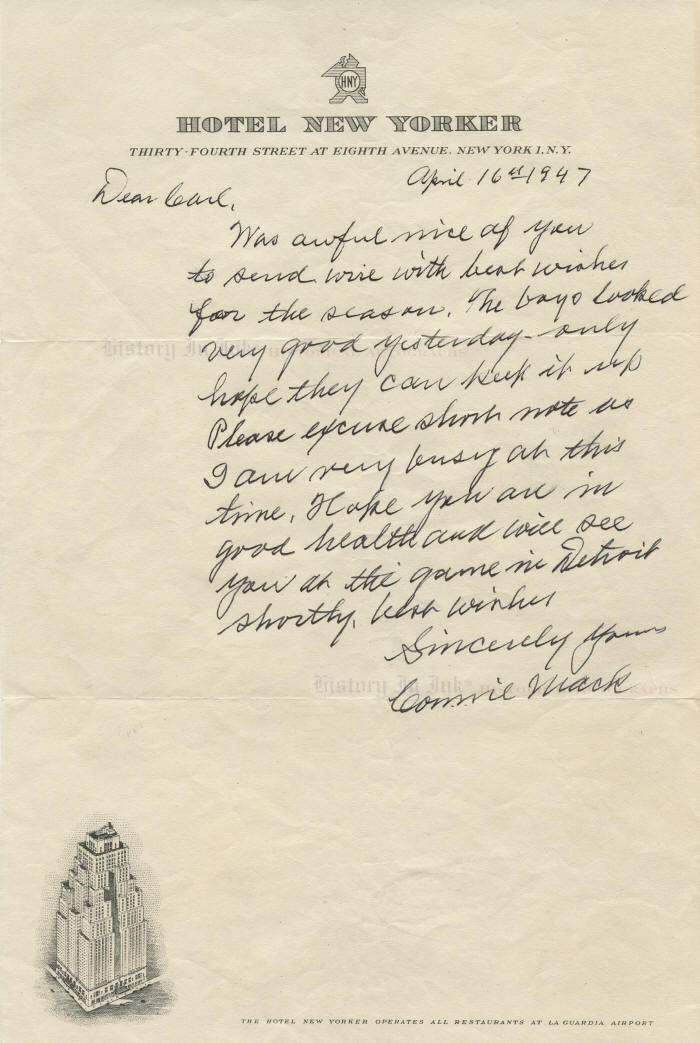 HNY
HOTEL NEW YORKER
THIRTY-FOURTH STREET AT EIGHTH AVENUE, NEW YORK 1, N.Y.
April 16st 1947
Dear Carl,
Was awful nice of you
to send wire with best wishes
for the season. The boys looked
very good yesterday - only
History In Ink
hope they can keep it up
Please excuse short note as
I am very busy at this
time. Hope you are in
good health and will see
you at the game in Detroit
shortly, best wishes
Sincerely Yours
History In Ink
Connie Mack
THE HOTEL NEW YORKER OPERATES ALL RESTAURANTS AT LA GUARDIA AIRPORT